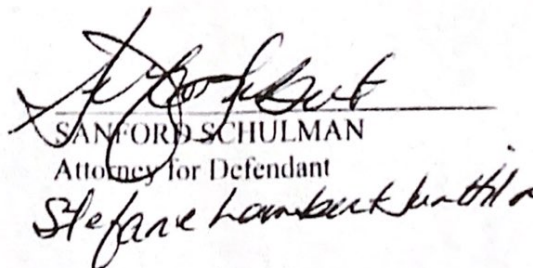 SANFORD SCHULMAN
Attorney for Defendant
Stefanie Lambert